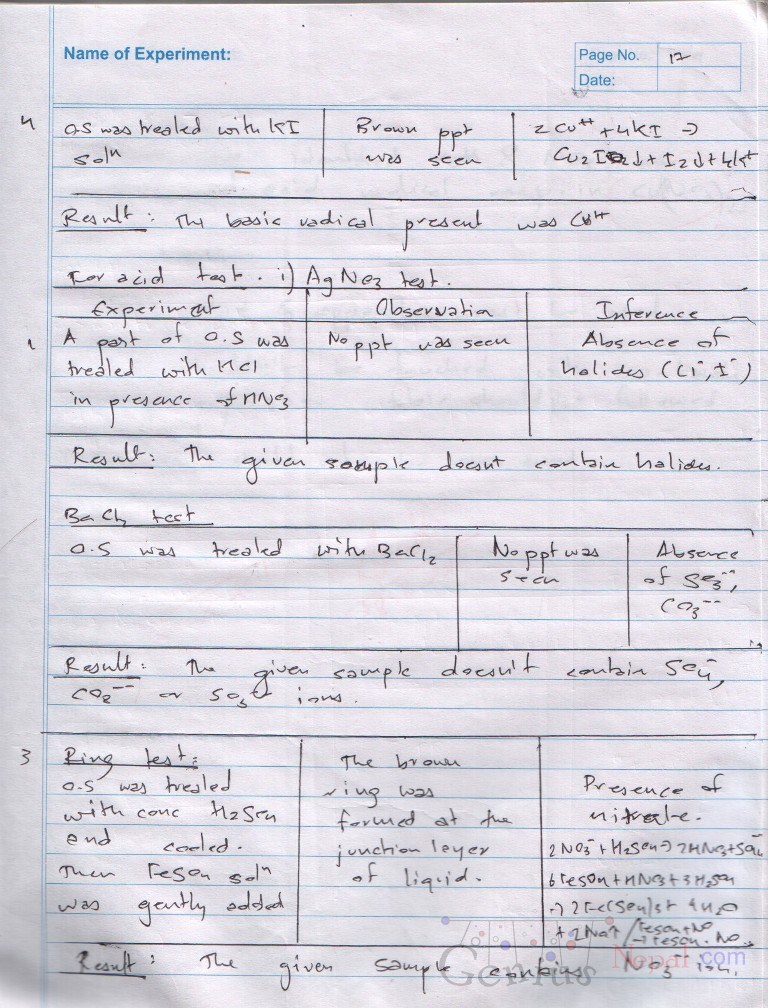 Name of Experiment:
Page No. 17
Date:
4 O.S was treated with KI
soln
Brown ppt
was seen
2 Cu++ + 4KI →
Cu2I2↓ + I2↓ + 4K+
Result: The basic radical present was Cu++
For acid test. i) AgNO3 test.
Experiment Observation Inference
1 A part of O.S was
treated with HCl
in presence of HNO3
No ppt was seen
Absence of
halides (Cl-, I-)
Result: The given sample doesnt contain halides.
BaCl2 test
O.S was treated with BaCl2
No ppt was
seen
Absence
of SO3--,
CO3--
Result: The given sample doesn't contain SO4--,
CO2-- or SO3 ions.
3 Ring test:
O.S was treated
with conc H2SO4
and cooled.
Then FeSO4 soln
was gently added
The brown
ring was
formed at the
junction layer
of liquid.
Presence of
nitrate.
2NO3- + H2SO4 → 2HNO3 + SO4--
6FeSO4 + HNO3 + 3H2SO4
→ 2Fe(SO4)3 + 4H2O
+ 2NO↑ / FeSO4 + NO
→ FeSO4.NO
Result: The given sample contains NO3- ion.
Genius Nepal.com